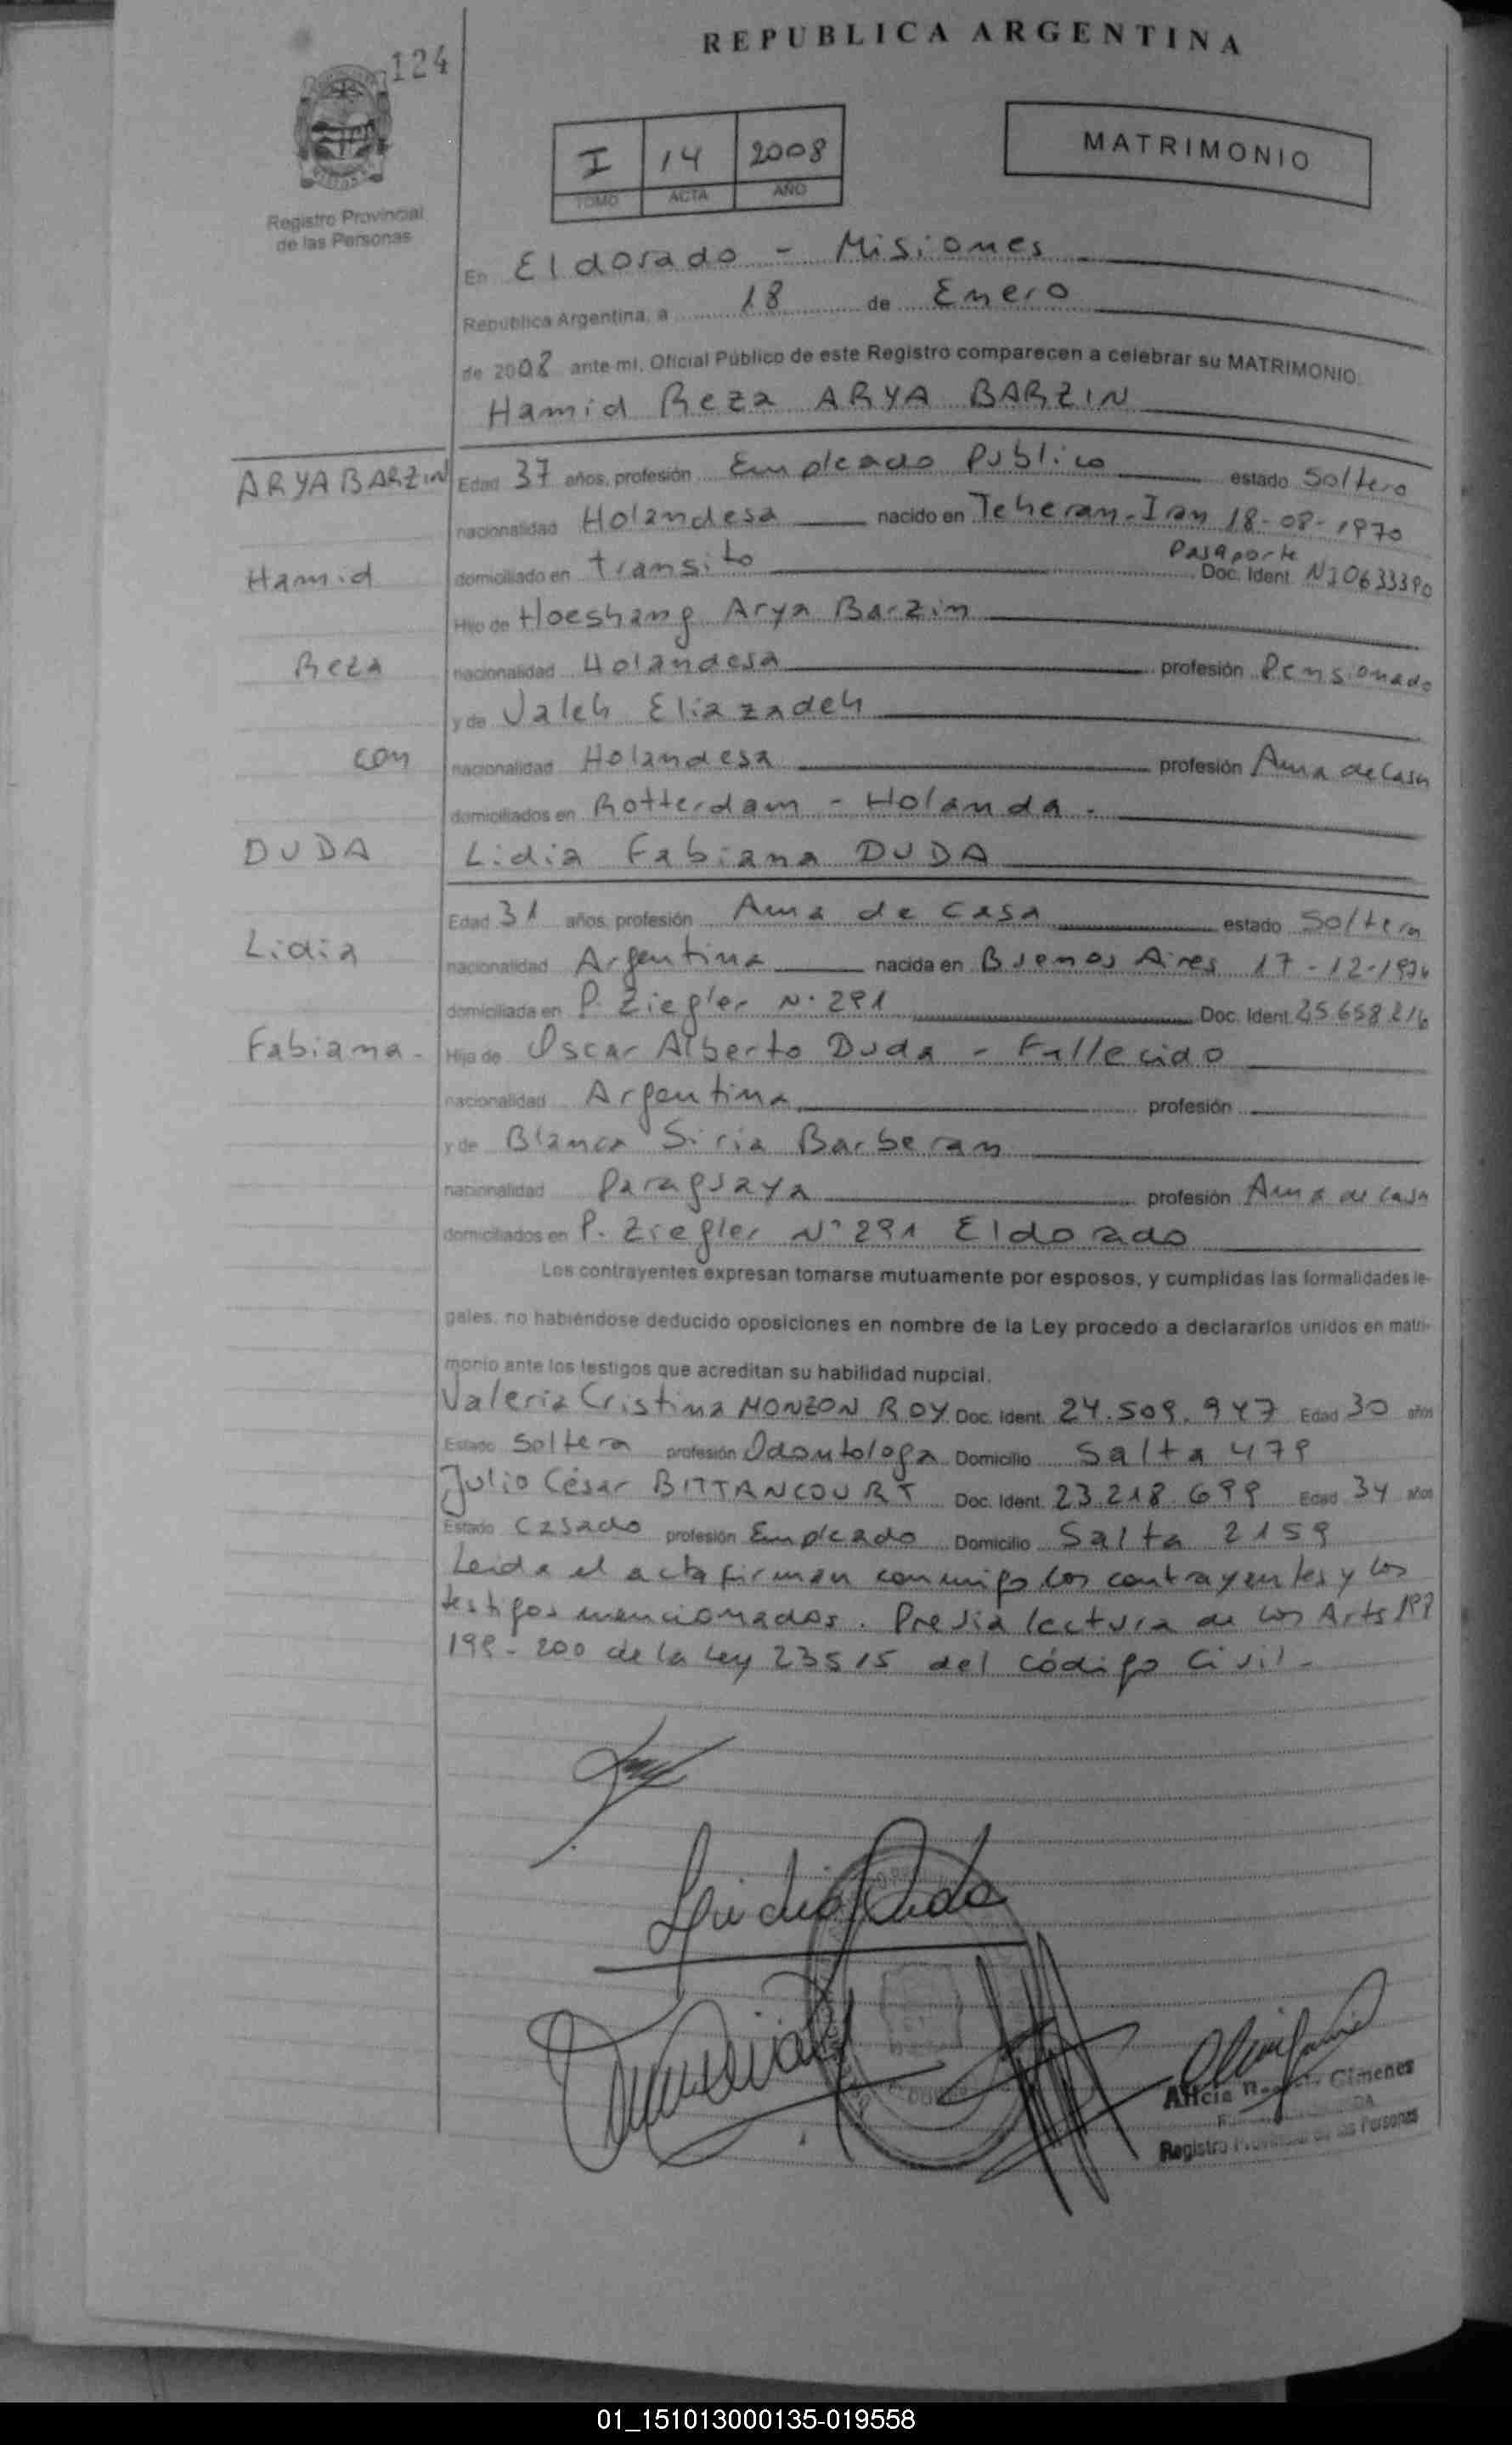 REPUBLICA ARGENTINA
124
I 14 2008
TOMO ACTA AÑO
MATRIMONIO
Registro Provincial
de las Personas
En Eldorado - Misiones
República Argentina, a 18 de Enero
de 2008 ante mi, Oficial Público de este Registro comparecen a celebrar su MATRIMONIO
Hamid Reza ARYA BARZIN
ARYA BARZIN
Edad 37 años, profesión Empleado Publico estado Soltero
nacionalidad Holandesa nacido en Teheran - Iran 18-08-1970
Hamid
domiciliado en transito Pasaporte Doc. Ident. NJ0633390
Hijo de Hoeshang Arya Barzin
Reza
nacionalidad Holandesa profesión Pensionado
y de Valeh Eliazadeh
con
nacionalidad Holandesa profesión Ama de Casa
domiciliados en Rotterdam - Holanda -
DUDA
Lidia Fabiana DUDA
Edad 31 años, profesión Ama de casa estado Soltera
Lidia
nacionalidad Argentina nacida en Buenos Aires 17-12-1976
domiciliada en P. Ziegler N° 291 Doc. Ident. 25.658.216
Fabiana -
Hija de Oscar Alberto Duda - Fallecido
nacionalidad Argentina profesión
y de Blanca Siria Barberan
nacionalidad Paraguaya profesión Ama de casa
domiciliados en P. Ziegler N° 291 Eldorado
Los contrayentes expresan tomarse mutuamente por esposos, y cumplidas las formalidades le-
gales, no habiéndose deducido oposiciones en nombre de la Ley procedo a declararlos unidos en matri-
monio ante los testigos que acreditan su habilidad nupcial.
Valeria Cristina MONZON ROY Doc. Ident. 24.509.947 Edad 30 años
Estado Soltera profesión Odontologa Domicilio Salta 479
Julio César BITTANCOURT Doc. Ident. 23.218.699 Edad 34 años
Estado Casado profesión Empleado Domicilio Salta 2159
Leida el acta firman conmigo los contrayentes y los
testigos mencionados. Previa lectura de los Arts 198
199-200 de la Ley 23515 del código Civil -
Lidia Duda
Alicia Gimenez
Registro Provincial de las Personas
01_151013000135-019558